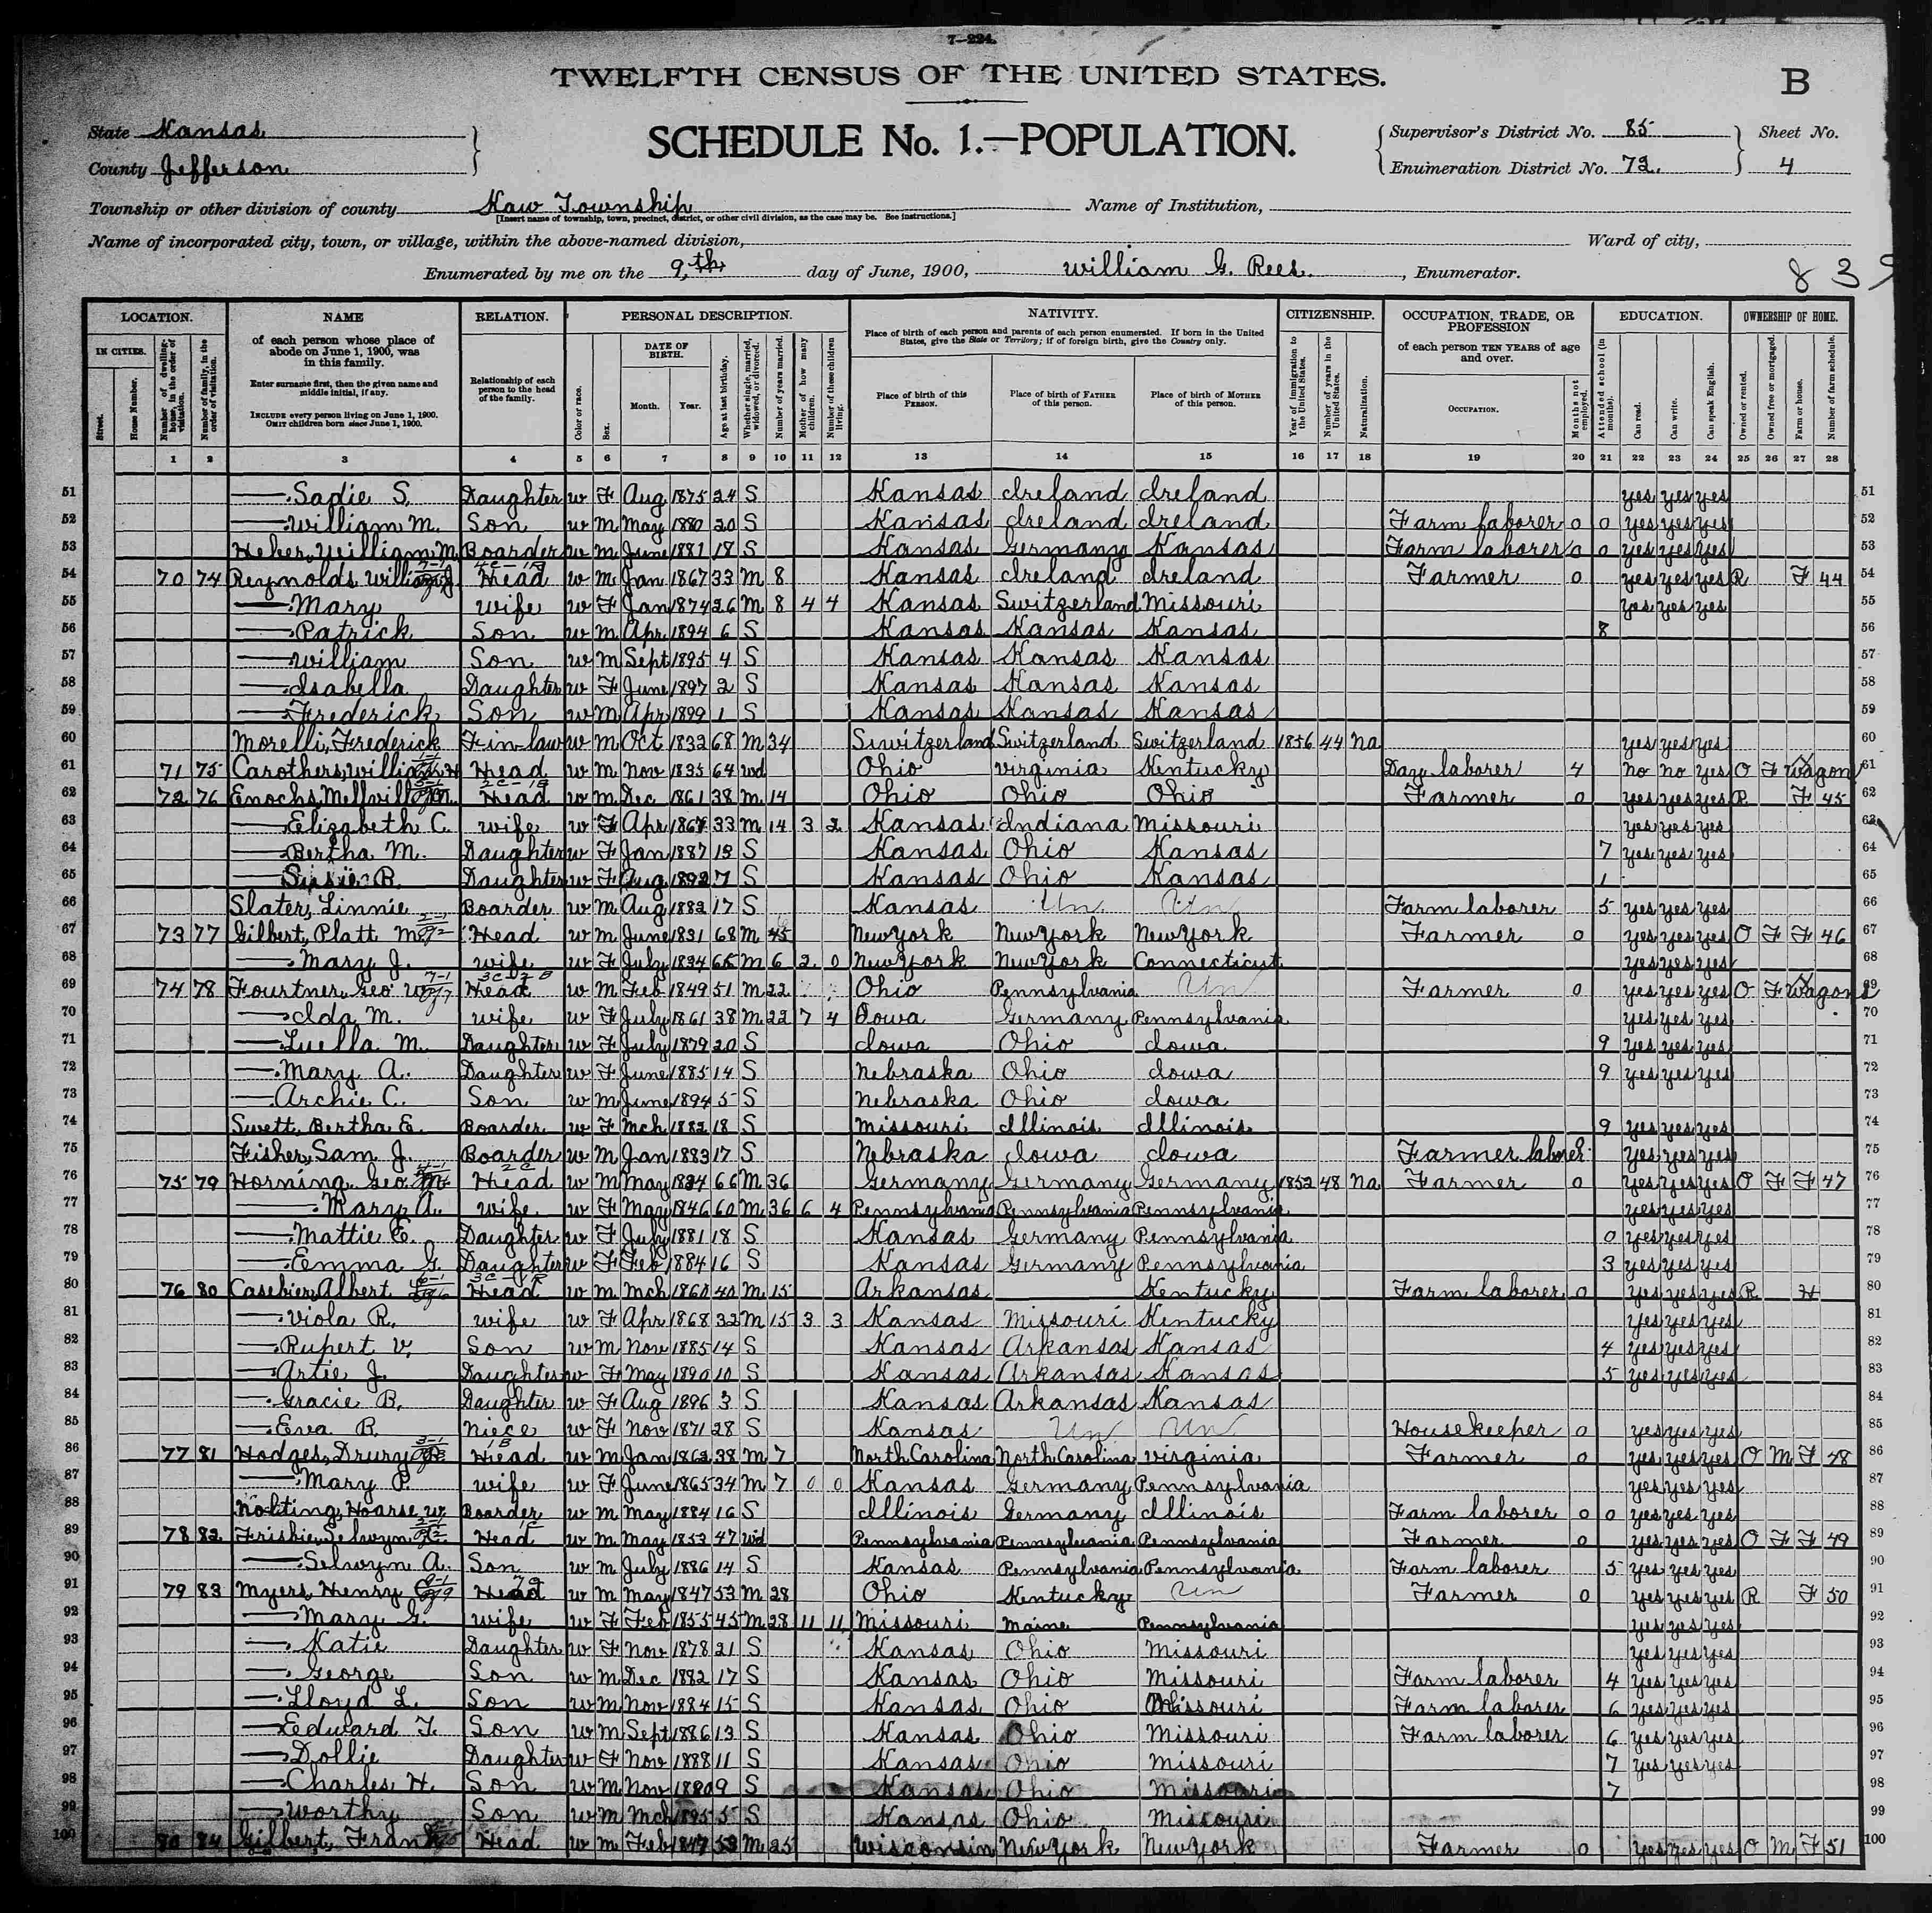 7—224.
TWELFTH CENSUS OF THE UNITED STATES.
B
State Kansas
County Jefferson
SCHEDULE No. 1.—POPULATION.
Supervisor's District No. 85
Enumeration District No. 72.
Sheet No.
4
Township or other division of county Kaw Township
[Insert name of township, town, precinct, district, or other civil division, as the case may be. See instructions.]
Name of Institution,
Name of incorporated city, town, or village, within the above-named division,
Ward of city,
Enumerated by me on the 9th day of June, 1900, William G. Rees, Enumerator.
83
LOCATION. NAME RELATION. PERSONAL DESCRIPTION. NATIVITY. CITIZENSHIP. OCCUPATION, TRADE, OR PROFESSION EDUCATION. OWNERSHIP OF HOME.
IN CITIES.
Street.
House Number.
Number of dwelling-house, in the order of visitation.
Number of family, in the order of visitation.
of each person whose place of abode on June 1, 1900, was in this family.
Enter surname first, then the given name and middle initial, if any.
INCLUDE every person living on June 1, 1900.
OMIT children born since June 1, 1900.
Relationship of each person to the head of the family.
Color or race.
Sex.
DATE OF BIRTH.
Month. Year.
Age at last birthday.
Whether single, married, widowed, or divorced.
Number of years married.
Mother of how many children.
Number of these children living.
Place of birth of each person and parents of each person enumerated. If born in the United States, give the State or Territory; if of foreign birth, give the Country only.
Place of birth of this PERSON.
Place of birth of FATHER of this person.
Place of birth of MOTHER of this person.
Year of immigration to the United States.
Number of years in the United States.
Naturalization.
of each person TEN YEARS of age and over.
OCCUPATION.
Months not employed.
Attended school (in months).
Can read.
Can write.
Can speak English.
Owned or rented.
Owned free or mortgaged.
Farm or house.
Number of farm schedule.
1 2 3 4 5 6 7 8 9 10 11 12 13 14 15 16 17 18 19 20 21 22 23 24 25 26 27 28
51 — Sadie S. Daughter w F Aug 1875 24 S Kansas Ireland Ireland yes yes yes 51
52 — William M. Son w m May 1880 20 S Kansas Ireland Ireland Farm laborer 0 0 yes yes yes 52
53 Heber, William M Boarder w m June 1881 18 S Kansas Germany Kansas Farm laborer 0 0 yes yes yes 53
54 70 74 Reynolds William Head w m Jan 1867 33 M 8 Kansas Ireland Ireland Farmer 0 yes yes yes R F 44 54
55 — Mary wife w F Jan 1874 26 M 8 4 4 Kansas Switzerland Missouri yes yes yes 55
56 — Patrick Son w m Apr 1894 6 S Kansas Kansas Kansas 8 56
57 — William Son w m Sept 1895 4 S Kansas Kansas Kansas 57
58 — Isabella Daughter w F June 1897 2 S Kansas Kansas Kansas 58
59 — Frederick Son w m Apr 1899 1 S Kansas Kansas Kansas 59
60 Morelli, Frederick F in law w m Oct 1832 68 M 34 Siwitzerland Switzerland Switzerland 1856 44 Na yes yes yes 60
61 71 75 Carothers, William H Head w m Nov 1835 64 wd Ohio Virginia Kentucky Day laborer 4 no no yes O F Wagon 61
62 72 76 Enochs, Mellvill Head w m Dec 1861 38 M 14 Ohio Ohio Ohio Farmer 0 yes yes yes R F 45 62
63 — Elizabeth C. wife w F Apr 1867 33 M 14 3 2 Kansas Indiana Missouri yes yes yes 63
64 — Bertha M. Daughter w F Jan 1887 13 S Kansas Ohio Kansas 7 yes yes yes 64
65 — Susie B. Daughter w F Aug 1892 7 S Kansas Ohio Kansas 1 65
66 Slater, Linnie Boarder w m Aug 1882 17 S Kansas Un Un Farm laborer 5 yes yes yes 66
67 73 77 Gilbert, Platt M Head w m June 1831 68 M New York New York New York Farmer 0 yes yes yes O F F 46 67
68 — Mary J. wife w F July 1834 65 M 6 2 0 New York New York Connecticut yes yes yes 68
69 74 78 Fourtner, Geo W Head w m Feb 1849 51 M 22 Ohio Pennsylvania Un Farmer 0 yes yes yes O F Wagons 69
70 — Ida M. wife w F July 1861 38 M 22 7 4 Iowa Germany Pennsylvania yes yes yes 70
71 — Luella M. Daughter w F July 1879 20 S Iowa Ohio Iowa 9 yes yes yes 71
72 — Mary A. Daughter w F June 1885 14 S Nebraska Ohio Iowa 9 yes yes yes 72
73 — Archie C. Son w m June 1894 5 S Nebraska Ohio Iowa 73
74 Swett, Bertha E. Boarder w F Mch 1882 18 S Missouri Illinois Illinois 9 yes yes yes 74
75 Fisher, Sam J. Boarder w m Jan 1883 17 S Nebraska Iowa Iowa Farmer laborer yes yes yes 75
76 75 79 Horning, Geo Head w m May 1834 66 M 36 Germany Germany Germany 1852 48 Na Farmer 0 yes yes yes O F F 47 76
77 — Mary A. wife w F May 1846 60 M 36 6 4 Pennsylvania Pennsylvania Pennsylvania yes yes yes 77
78 — Mattie E. Daughter w F July 1881 18 S Kansas Germany Pennsylvania 0 yes yes yes 78
79 — Emma G. Daughter w F Feb 1884 16 S Kansas Germany Pennsylvania 3 yes yes yes 79
80 76 80 Casebier, Albert Head w m Mch 1860 40 M 15 Arkansas Kentucky Farm laborer 0 yes yes yes R H 80
81 — Viola R. wife w F Apr 1868 32 M 15 3 3 Kansas Missouri Kentucky yes yes yes 81
82 — Rupert V. Son w m Nov 1885 14 S Kansas Arkansas Kansas 4 yes yes yes 82
83 — Artie J. Daughter w F May 1890 10 S Kansas Arkansas Kansas 5 yes yes yes 83
84 — Gracie B. Daughter w F Aug 1896 3 S Kansas Arkansas Kansas 84
85 — Eva B. Niece w F Nov 1871 28 S Kansas Un Un Housekeeper 0 yes yes yes 85
86 77 81 Hodges, Drury Head w m Jan 1862 38 M 7 North Carolina North Carolina Virginia Farmer 0 yes yes yes O M F 48 86
87 — Mary P. wife w F June 1865 34 M 7 0 0 Kansas Germany Pennsylvania yes yes yes 87
88 Nolting, Hoarse W. Boarder w m May 1884 16 S Illinois Germany Illinois Farm laborer 0 0 yes yes yes 88
89 78 82 Friskie, Selwyn Head w m May 1853 47 wd Pennsylvania Pennsylvania Pennsylvania Farmer 0 yes yes yes O F F 49 89
90 — Selwyn A. Son w m July 1886 14 S Kansas Pennsylvania Pennsylvania Farm laborer 5 yes yes yes 90
91 79 83 Myers, Henry Head w m May 1847 53 M 28 Ohio Kentucky Un Farmer 0 yes yes yes R F 50 91
92 — Mary G. wife w F Feb 1855 45 M 28 11 11 Missouri Maine Pennsylvania yes yes yes 92
93 — Katie Daughter w F Nov 1878 21 S Kansas Ohio Missouri yes yes yes 93
94 — George Son w m Dec 1882 17 S Kansas Ohio Missouri Farm laborer 4 yes yes yes 94
95 — Lloyd L. Son w m Nov 1884 15 S Kansas Ohio Missouri Farm laborer 6 yes yes yes 95
96 — Eedward F. Son w m Sept 1886 13 S Kansas Ohio Missouri Farm laborer 6 yes yes yes 96
97 — Dollie Daughter w F Nov 1888 11 S Kansas Ohio Missouri 7 yes yes yes 97
98 — Charles H. Son w m Nov 9 S Kansas Ohio Missouri 7 98
99 — Worthy Son w m Mch 1895 5 S Kansas Ohio Missouri 99
100 80 84 Gilbert, Frank Head w m Feb 1847 53 M 25 Wisconsin New York New York Farmer 0 yes yes yes O M F 51 100